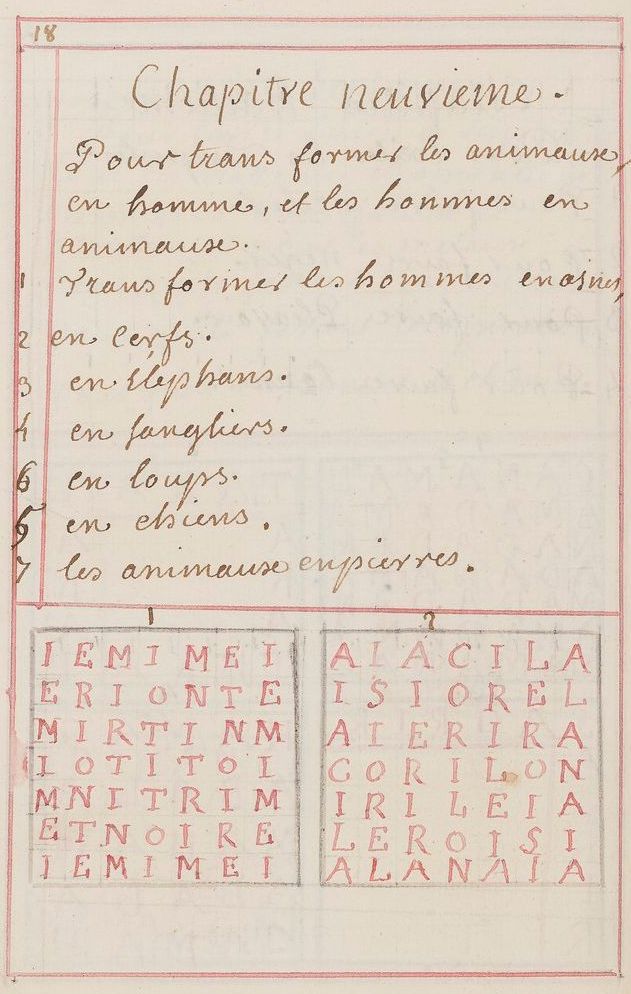 18
Chapitre neuvieme.
Pour trans former les animause
en homme, et les hommes en
animause.
1 Trans former les hommes en asnes,
2 en Cerfs.
3 en Elephans.
4 en sangliers.
6 en loups.
5 en chiens.
7 les animause en pierres.
1
I E M I M E I
E R I O N T E
M I R T I N M
I O T I T O I
M N I T R I M
E T N O I R E
I E M I M E I
2
A I A C I L A
I S I O R E L
A I E R I R A
C O R I L O N
I R I L E I A
L E R O I S I
A L A N A I A